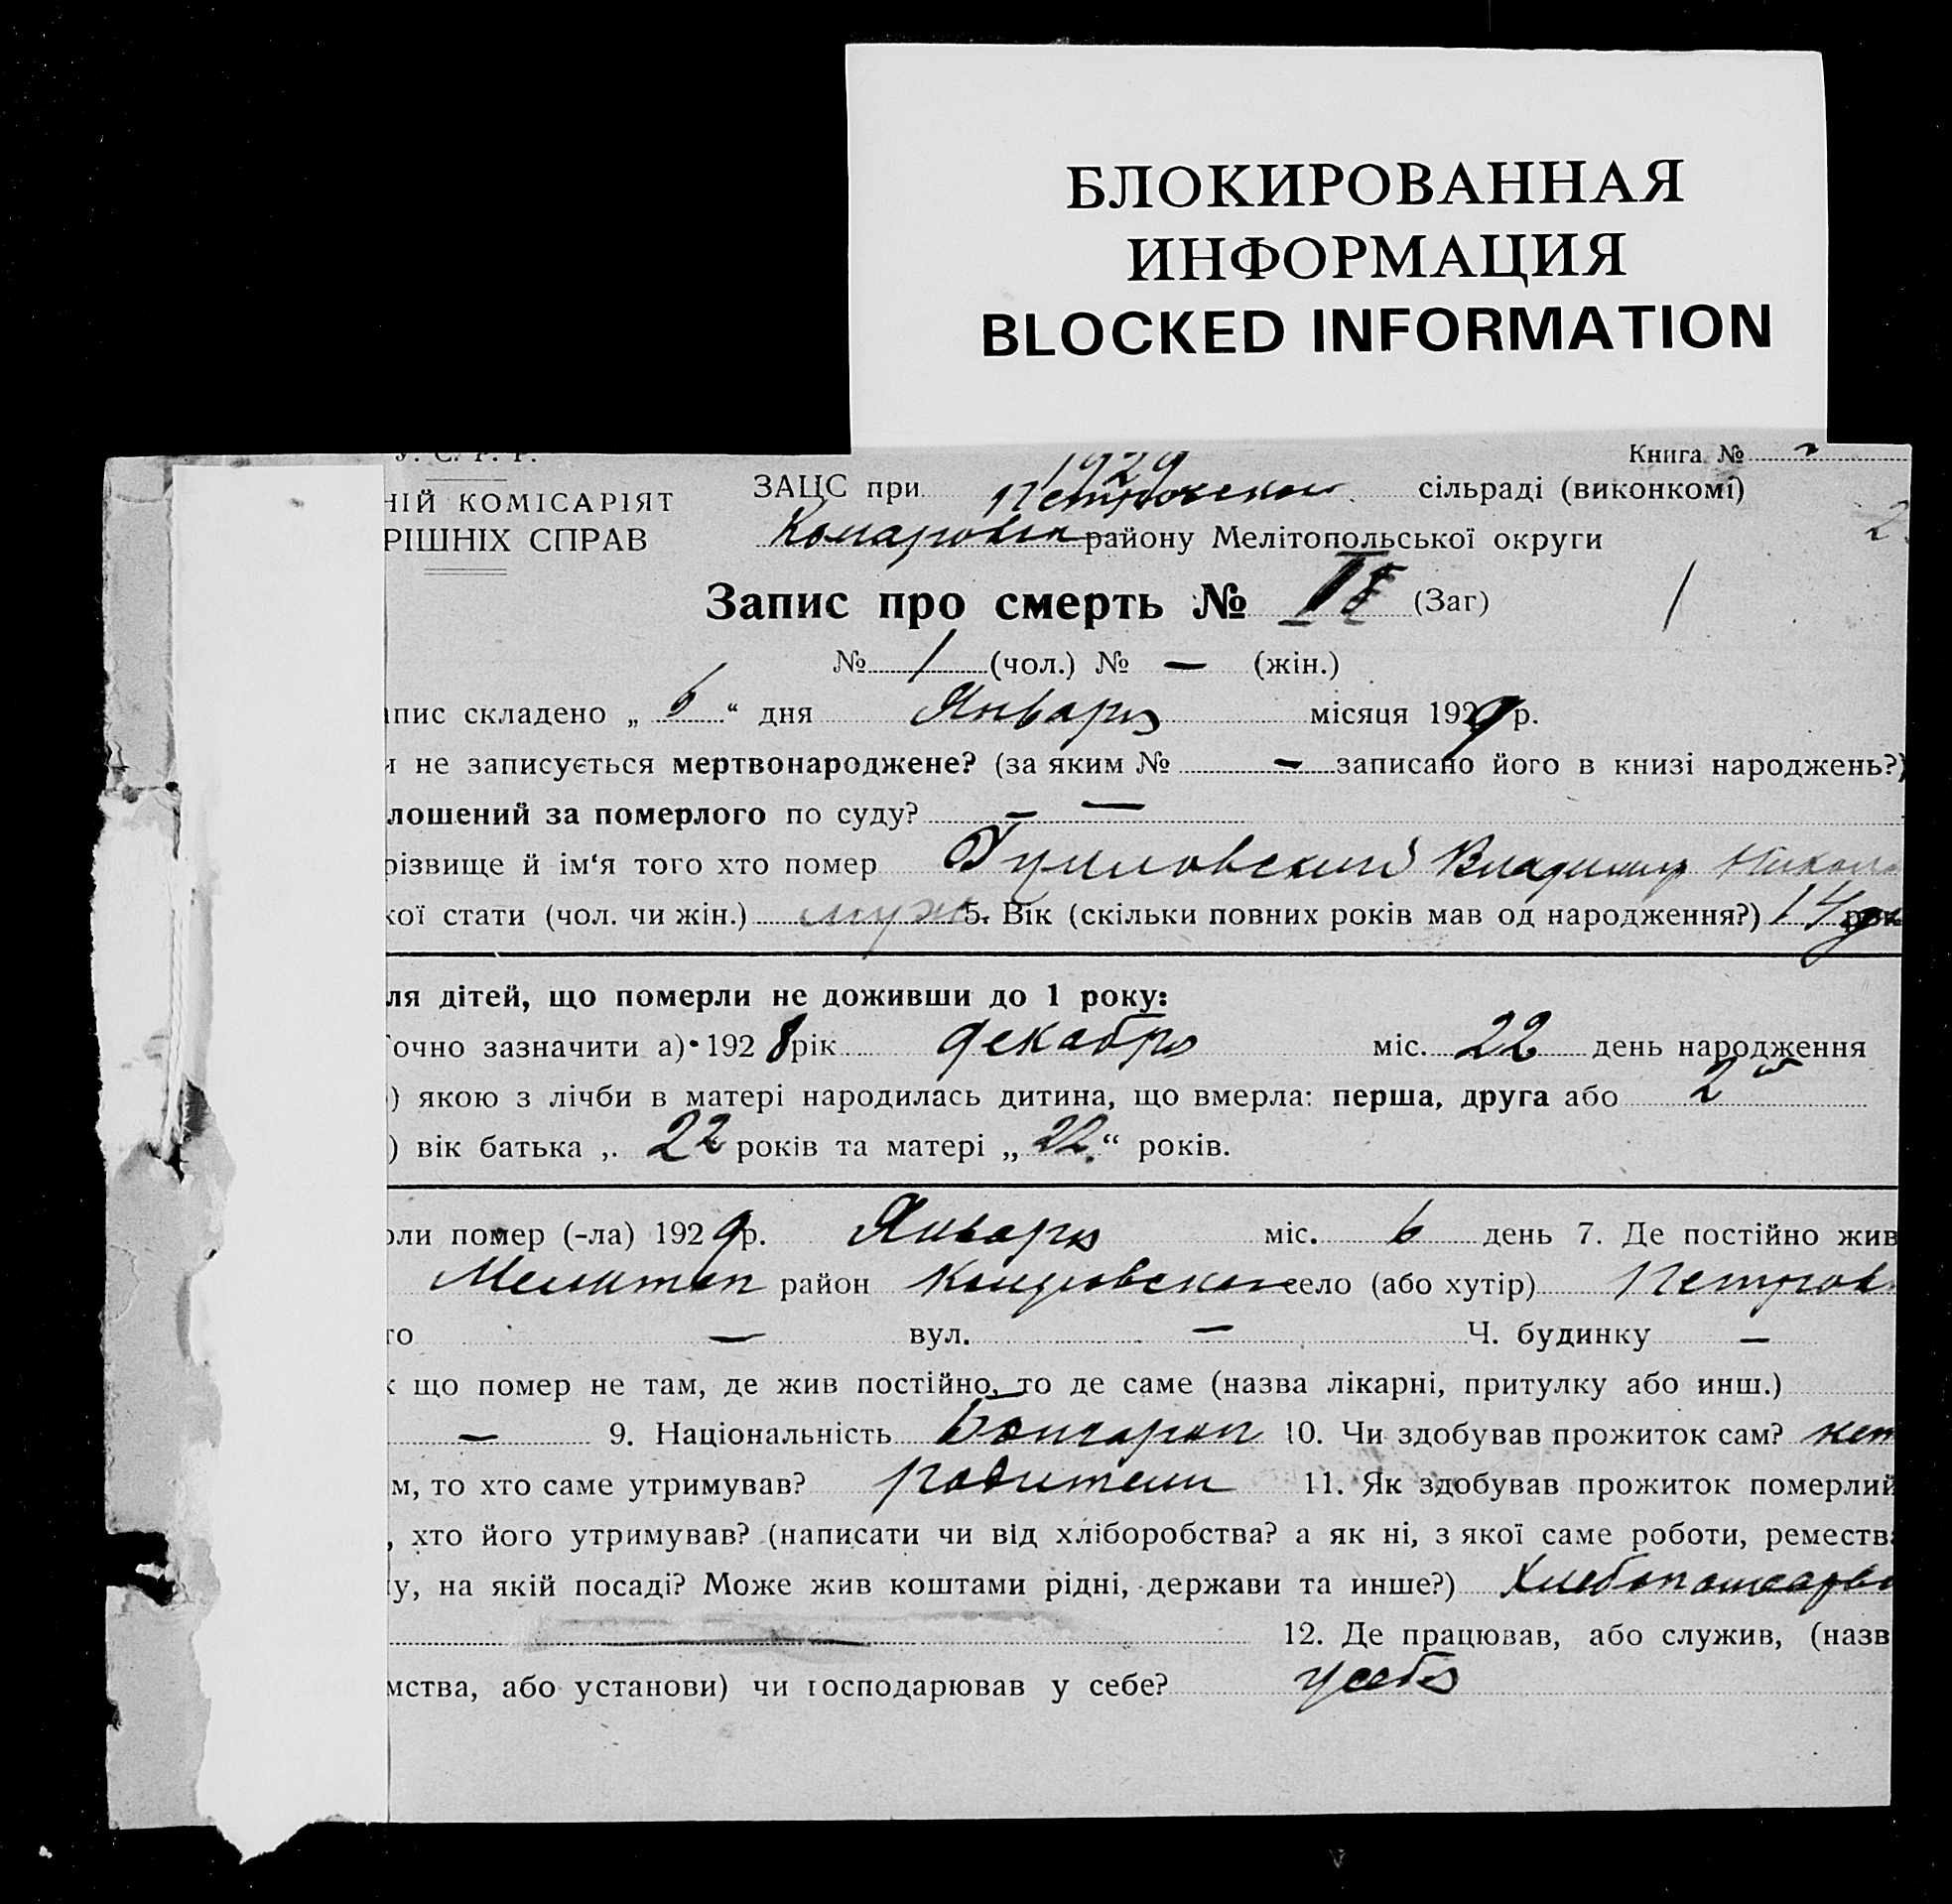 БЛОКИРОВАННАЯ
ИНФОРМАЦИЯ
BLOCKED INFORMATION
У. С. Р. Р.
Книга №
1929
НІЙ КОМІСАРІЯТ
ЗАЦС при Петровском сільраді (виконкомі)
РІШНІХ СПРАВ
району Мелітопольської округи
2
Запис про смерть № (Заг) /
№ 1 (чол.) № — (жін.)
апис складено „ 6 “ дня Января місяця 1929 р.
и не записується мертвонароджене? (за яким № — записано його в книзі народжень?)
лошений за померлого по суду? — —
різвище й ім‘я того хто помер Владимир Никол
кої стати (чол. чи жін.) муж 5. Вік (скільки повних років мав од народження?) 14
ля дітей, що померли не доживши до 1 року:
Точно зазначити а) 1928 рік декабря міс. 22 день народження
) якою з лічби в матері народилась дитина, що вмерла: перша, друга або 2
) вік батька „ 22 років та матері „ 22 “ років.
оли помер (-ла) 1929 р. Января міс. 6 день 7. Де постійно жив
Мелитоп район село (або хутір) Петров
го — вул. — Ч. будинку —
к що помер не там, де жив постійно, то де саме (назва лікарні, притулку або инш.)
— 9. Національність Болгарин 10. Чи здобував прожиток сам? нет
м, то хто саме утримував? родители 11. Як здобував прожиток померлий
, хто його утримував? (написати чи від хліборобства? а як ні, з якої саме роботи, реместв
у, на якій посаді? Може жив коштами рідні, держави та инше?)
12. Де працював, або служив, (назв
мства, або установи) чи господарював у себе? у себя